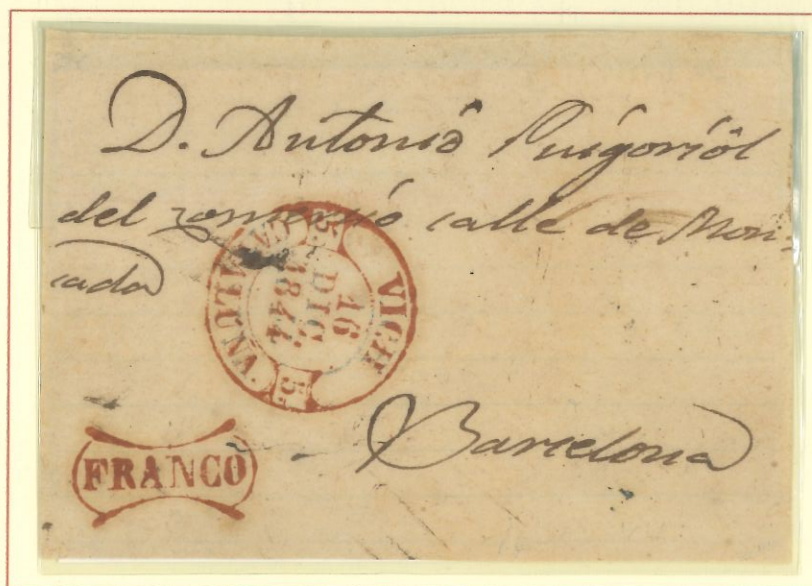 D. Antonio Puigoriol
del comercio calle de Mon-
cada
VICH
16
DIC
1844
CATALUÑA.
5.
5.
Barcelona
FRANCO